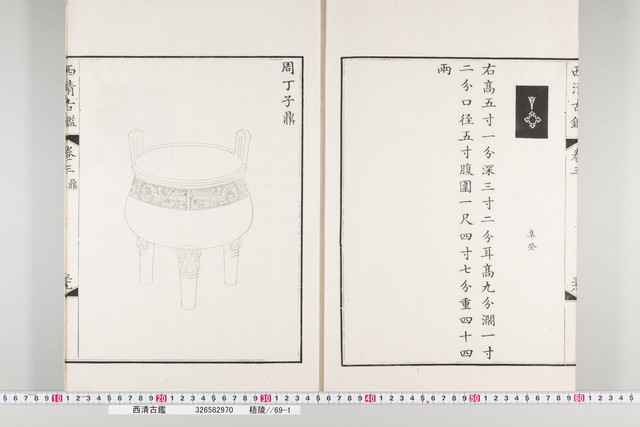 西清古鑑 卷三
辛癸
右髙五寸一分深三寸二分耳髙九分濶一寸
二分口徑五寸腹圍一尺四寸七分重四十四
兩
周丁子鼎
西清古鑑 卷三 鼎
10 20 30 40 50 60
西清古鑑 326582970 梧陵//69-1